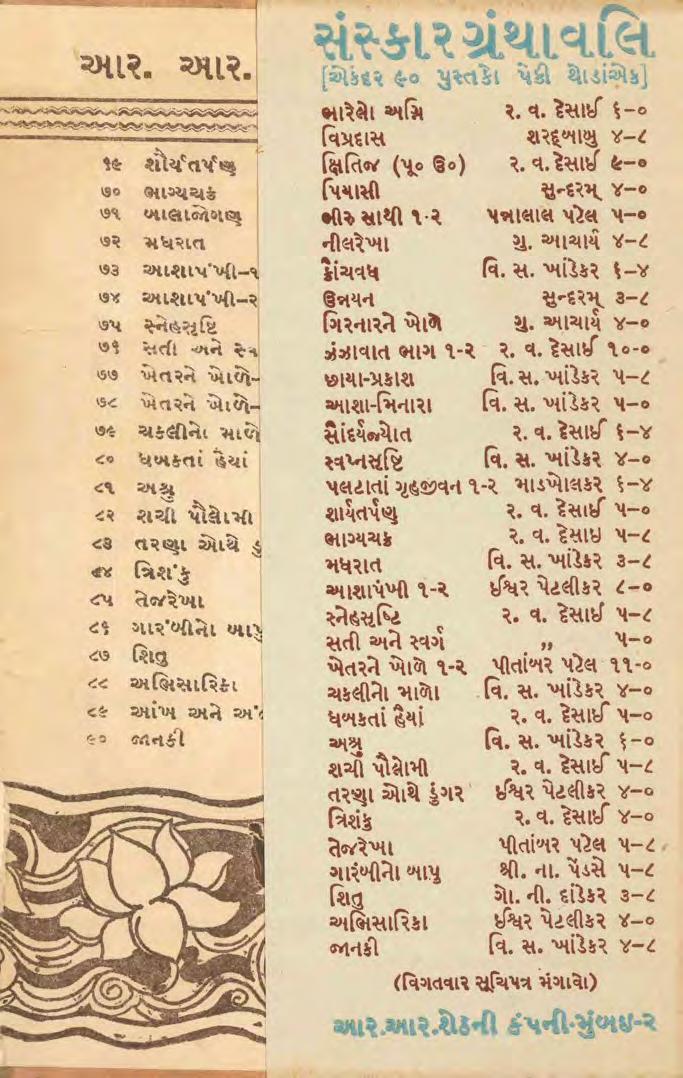 આર. આર.
૬૯ શૌર્યતર્પણ
૭૦ ભાગ્યચક્ર
૭૧ બાલાજોગણ
૭૨ મધરાત
૭૩ આશાપંખી–૧
૭૪ આશાપંખી–૨
૭૫ સ્નેહસૃષ્ટિ
૭૬ સતી અને સ્વ
૭૭ ખેતરને ખોળે–
૭૮ ખેતરને ખોળે–
૭૯ ચકલીનો માળો
૮૦ ધબકતાં હૈયાં
૮૧ અશ્રુ
૮૨ શચી પૌલોમી
૮૩ તરણા ઓથે ડું
૮૪ ત્રિશંકુ
૮૫ તેજરેખા
૮૬ ગારંબીનો બાપુ
૮૭ શિતુ
૮૮ અભિસારિકા
૮૯ આંખ અને અં
૯૦ જાનકી
સંસ્કારગ્રંથાવલિ
[એકંદર ૯૦ પુસ્તકો પૈકી થોડાંએક]
ભારેલો અગ્નિ ૨. વ. દેસાઈ ૬–૦
વિપ્રદાસ શરદ્‌બાબુ ૪–૮
ક્ષિતિજ (પૂ૦ ઉ૦) ૨. વ. દેસાઈ ૯–૦
પિયાસી સુન્દરમ્ ૪–૦
ભીરુ સાથી ૧-૨ પન્નાલાલ પટેલ ૫–૦
નીલરેખા ગુ. આચાર્ય ૪–૮
ક્રૌંચવધ વિ. સ. ખાંડેકર ૬–૪
ઉન્નયન સુન્દરમ્ ૩–૮
ગિરનારને ખોળે ગુ. આચાર્ય ૪–૦
ઝંઝાવાત ભાગ ૧-૨ ૨. વ. દેસાઈ ૧૦-૦
છાયા-પ્રકાશ વિ. સ. ખાંડેકર ૫–૮
આશા-મિનારા વિ. સ. ખાંડેકર ૫–૦
સૌંદર્યજ્યોત ૨. વ. દેસાઈ ૬–૪
સ્વપ્નસૃષ્ટિ વિ. સ. ખાંડેકર ૪–૦
પલટાતાં ગૃહજીવન ૧-૨ માડખોલકર ૬–૪
શૌર્યતર્પણ ૨. વ. દેસાઈ ૫–૦
ભાગ્યચક્ર ૨. વ. દેસાઈ ૫–૮
મધરાત વિ. સ. ખાંડેકર ૩–૮
આશાપંખી ૧-૨ ઈશ્વર પેટલીકર ૮–૦
સ્નેહસૃષ્ટિ ૨. વ. દેસાઈ ૫–૮
સતી અને સ્વર્ગ ,, ૫–૦
ખેતરને ખોળે ૧-૨ પીતાંબર પટેલ ૧૧-૦
ચકલીનો માળો વિ. સ. ખાંડેકર ૪–૦
ધબકતાં હૈયાં ૨. વ. દેસાઈ ૫–૦
અશ્રુ વિ. સ. ખાંડેકર ૬–૦
શચી પૌલોમી ૨. વ. દેસાઈ ૫–૮
તરણા ઓથે ડુંગર ઈશ્વર પેટલીકર ૪–૦
ત્રિશંકુ ૨. વ. દેસાઈ ૪–૦
તેજરેખા પીતાંબર પટેલ ૫–૮
ગારંબીનો બાપુ શ્રી. ના. પેંડસે ૫–૮
શિતુ ગો. ની. દાંડેકર ૩–૮
અભિસારિકા ઈશ્વર પેટલીકર ૪–૦
જાનકી વિ. સ. ખાંડેકર ૪–૮
(વિગતવાર સૂચિપત્ર મંગાવો)
આર.આર.શેઠની કંપની·મુંબઇ-૨